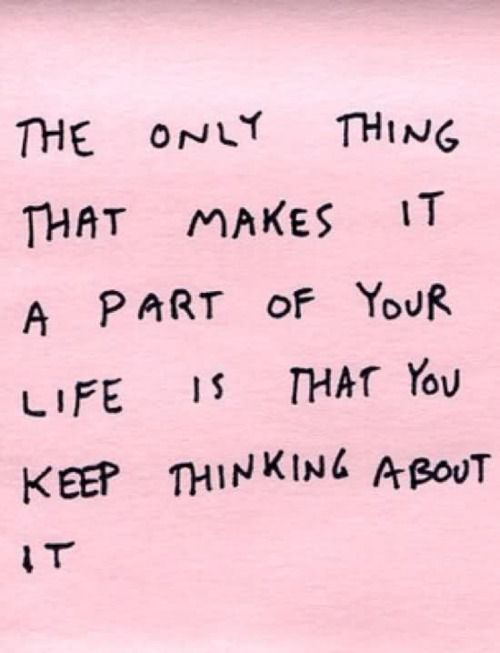 THE ONLY THING
THAT MAKES IT
A PART OF YOUR
LIFE IS THAT YOU
KEEP THINKING ABOUT
IT